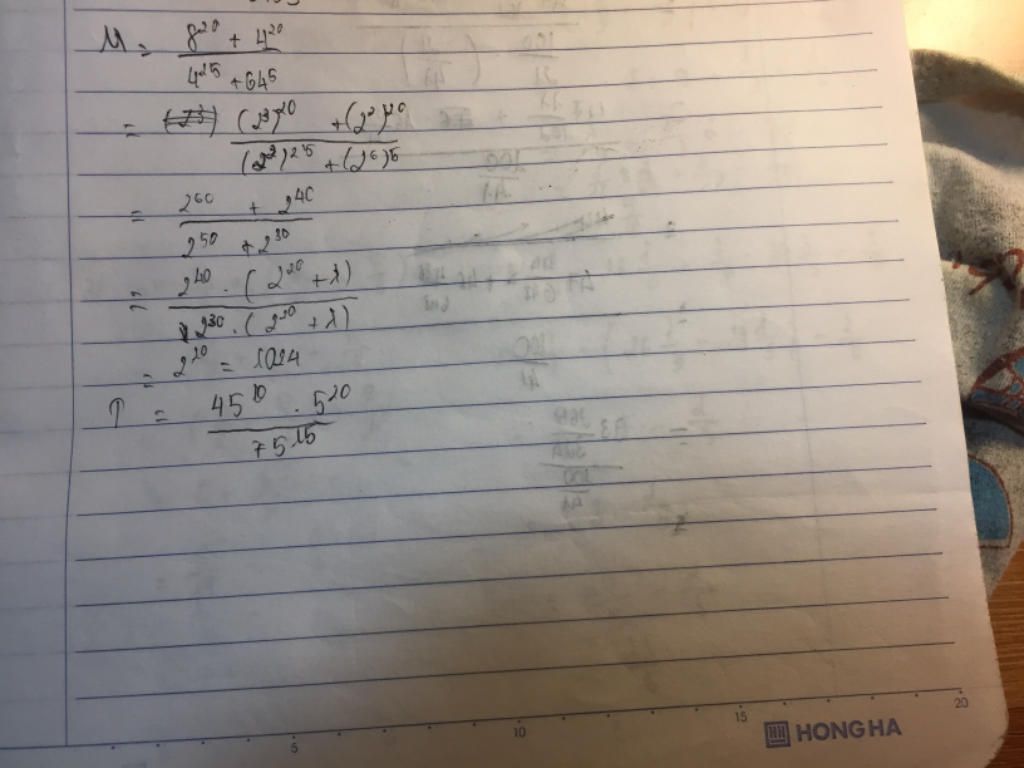 M = (8^20 + 4^20) / (4^25 + 64^5)
= (2^3)^20 + (2^2)^20 / (2^2)^25 + (2^6)^5
= 2^60 + 2^40 / 2^50 + 2^30
= 2^40 . (2^20 + 1) / 2^30 . (2^20 + 1)
= 2^10 = 1024
T = 45^10 . 5^20 / 75^15
5 10 15 20
HONG HA